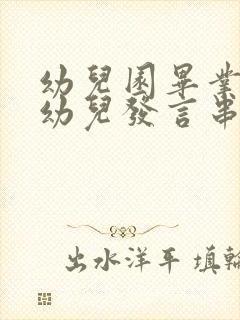 幼兒園畢業
幼兒發言串
出水洋平 填輪